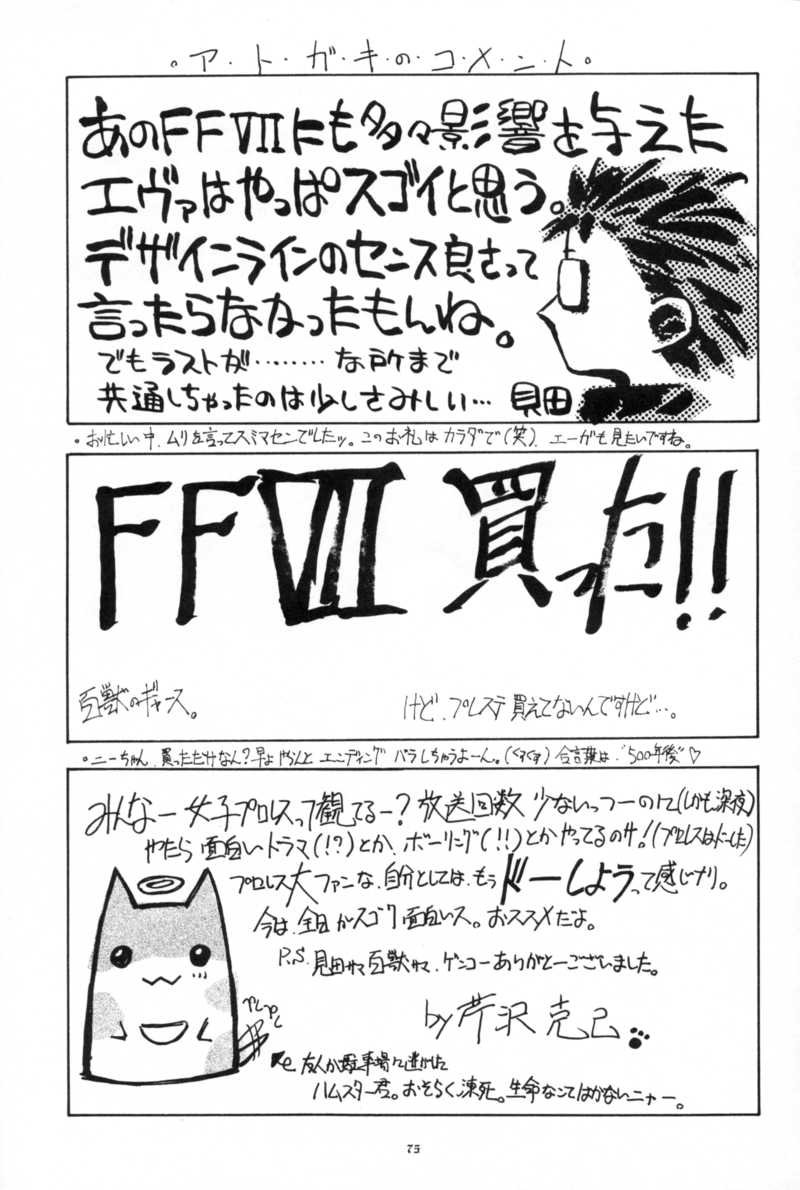 。ア・ト・ガ・キ・の・コ・メ・ン・ト。
あのFFⅦにも多々影響を与えた
エヴァはやっぱスゴイと思う。
デザインラインのセンス良さって
言ったらなかったもんね。
でもラストが………な所まで
共通しちゃったのは少しさみしい… 見田
・お忙しい中、ムリを言ってスミマセンでしたッ。このお礼はカラダで(笑)、エーガも見たいですね。
FFⅦ 買った!!
百獣のギャース。
けど、プレステ買えてないんですけど…。
・ニーちゃん、買っただけなん?早よやらんと エンディング バラしちゃうよーん。(くすくす) 合言葉は、"500年後"♡
みんなー 女子プロレスって観てるー?放送回数 少ないっつーのに(しかも深夜)
やたら 面白いドラマ(!?)とか、ボーリング(!!)とかやってるのサ!(プロレスはどーした)
プロレス大ファンな、自分としては、もう ドーしようって感じナリ。
今は、全日がスゴク面白いス。おススメだよ。
P.S. 見田サマ 百獣サマ、ゲンコーありがとーございました。
by 芹沢 克己
友人が駐車場で逃がした
ハムスター君。おそらく凍死。生命なんてはかないニャー。
75